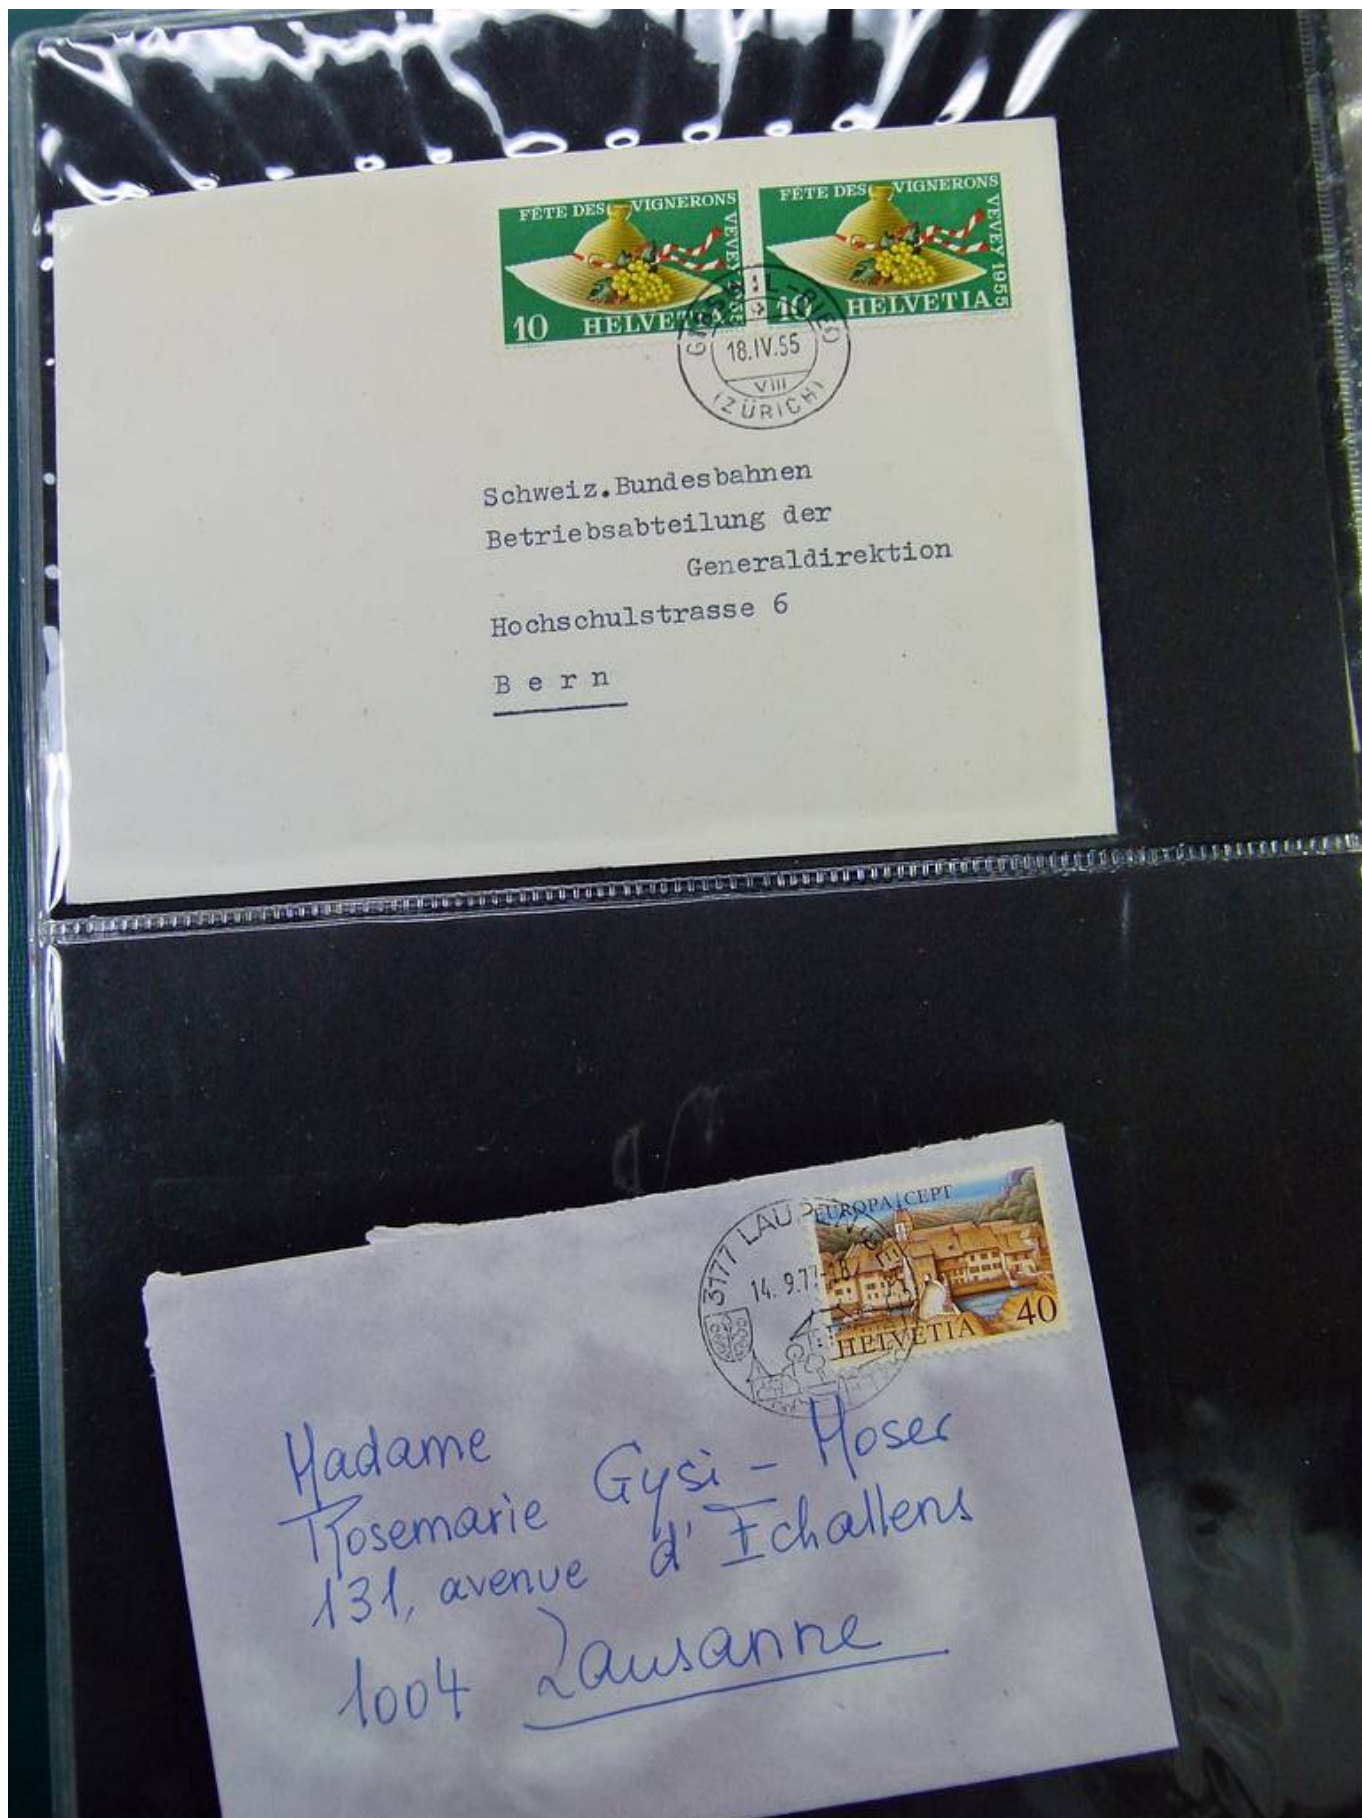 FÊTE DES VIGNERONS
VEVEY 1955
10 HELVETIA
FÊTE DES VIGNERONS
VEVEY 1955
10 HELVETIA
18.IV.55
VIII
(ZÜRICH)
Schweiz.Bundesbahnen
Betriebsabteilung der
Generaldirektion
Hochschulstrasse 6
Bern
EUROPA CEPT
40
HELVETIA
3177 LAUPEN BE
14. 9.77-18
Madame
Rosemarie Gysi - Moser
131, avenue d'Echallens
1004 Lausanne